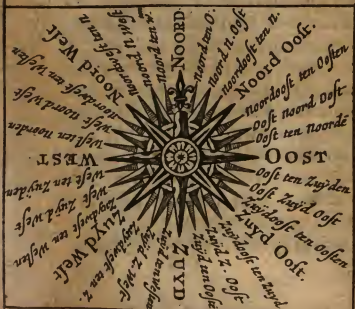 NOORD
noord ten O.
noord n. Ooſt
noordooſt ten n.
Noord Ooſt.
noordooſt ten Ooſten
Ooſt noord Ooſt
Ooſt ten Noordē
OOST
Ooſt ten Zuÿden
Ooſt Zuÿd Ooſt
Zuÿdooſt ten Ooſten
Zuyd Ooſt.
Zuÿdooſt ten Zuyd
Zuÿd Z. Ooſt
Zuÿd ten Ooſt
ZUYD
Zuÿd ten Weſten
Zuÿd Z. Weſt
Zuÿdweſt ten Z.
Zuyd Weſt
Zuÿdweſt ten Weſten
Weſt Zuÿd Weſt
Weſt ten Zuÿden
WEST
Weſt ten Noorden
Weſt Noord Weſt
Noordweſt ten Weſten
Noord Weſt
Noordweſt ten n
noord n Weſt